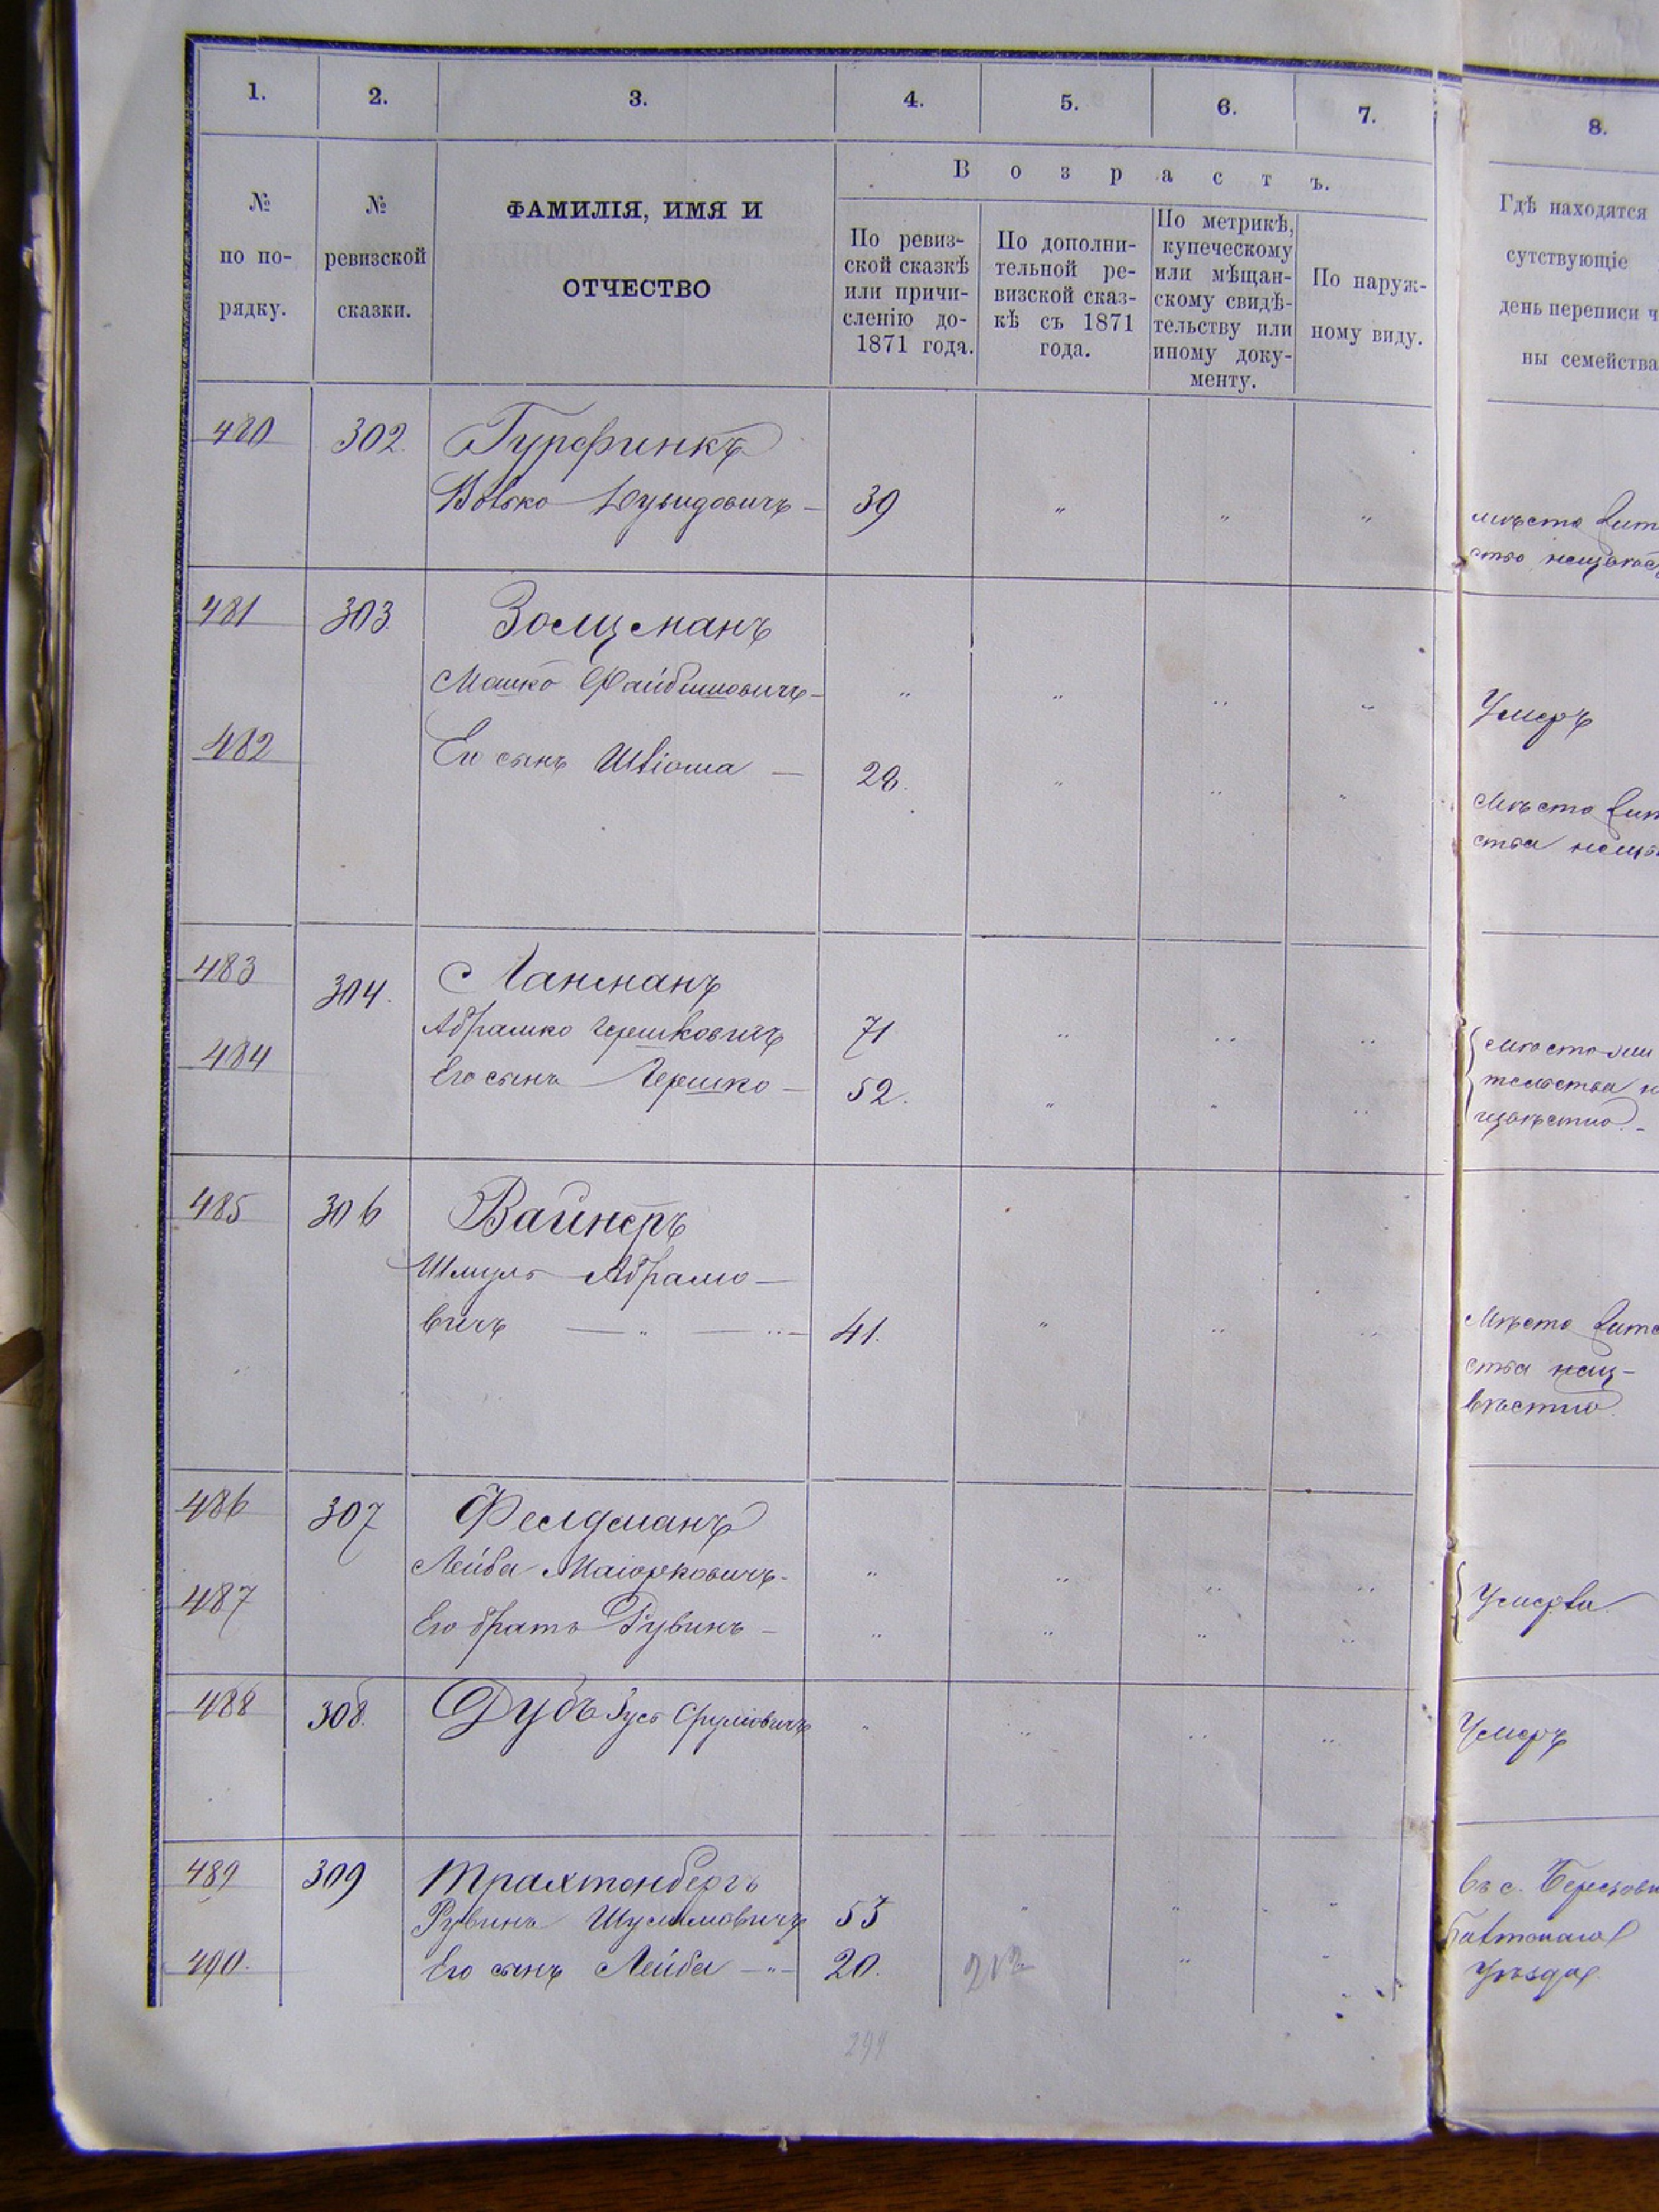 1. 2. 3. 4. 5. 6. 7. 8.
Возрастъ.
№ по порядку.
№ ревизской сказки.
ФАМИЛІЯ, ИМЯ И
ОТЧЕСТВО
По ревиз-
ской сказкѣ
или причи-
сленію до-
1871 года.
По дополни-
тельной ре-
визской сказ-
кѣ съ 1871
года.
По метрикѣ,
купеческому
или мѣщан-
скому свидѣ-
тельству или
иному доку-
менту.
По наруж-
ному виду.
Гдѣ находятся
сутствующіе
день переписи ч
ны семейства
480 302.
Вовко Дувидовичъ – 39 " " "
мѣсто жит
ство неизвѣс
481 303. Золцманъ
Мошко Файбишовичъ – " " " "
Умеръ
482 Его сынъ – 28. " " "
Мѣсто жит
ства неизв
483 304. Лансманъ
Абрамко Гершковичъ 71 " " "
484 Его сынъ Гершко – 52. " " "
мѣсто жи
тельства н
извѣстно. –
485 306 Вайнеръ
Шмуль Абрамо –
вичъ — " — " – 41. " " "
Мѣсто жите
ства неиз –
вѣстно.
486 307 Фелдманъ
Лейба Маіорковичъ – " " " "
487 Его братъ Рувинъ – " " " "
Умерли
488 308. Дубъ Зусь Фроимовичъ " " " "
Умеръ
489 309 Трахтонбергъ
Рувинъ Шулимовичъ 53 " " "
490. Его сынъ Лейба – " – 20. " "
въ с.
Балтскаго
Уѣзда
212
299